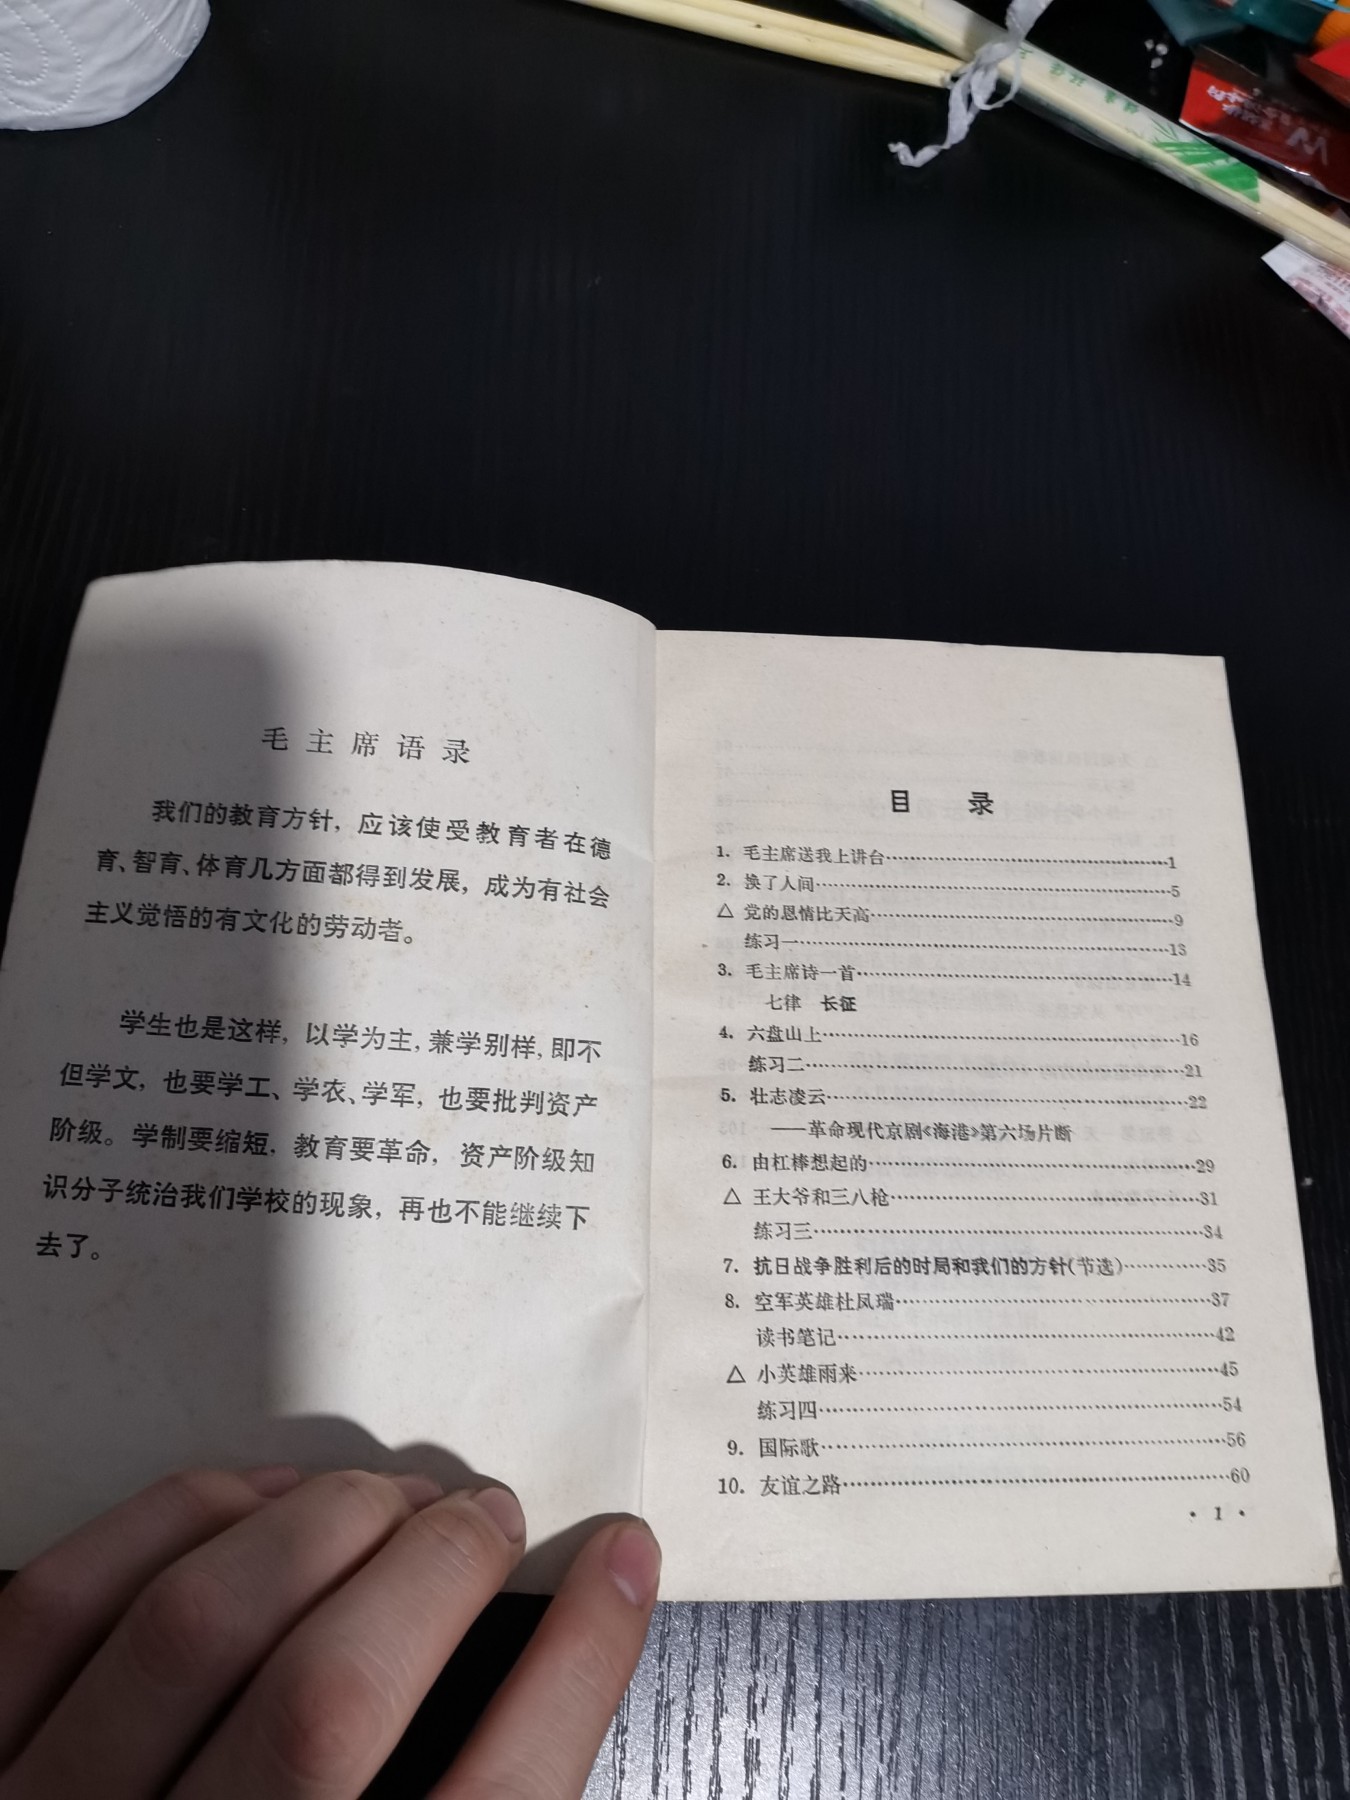 毛主席语录
我们的教育方针，应该使受教育者在德
育、智育、体育几方面都得到发展，成为有社会
主义觉悟的有文化的劳动者。
学生也是这样，以学为主，兼学别样，即不
但学文，也要学工、学农、学军，也要批判资产
阶级。学制要缩短，教育要革命，资产阶级知
识分子统治我们学校的现象，再也不能继续下
去了。
目 录
1. 毛主席送我上讲台……1
2. 换了人间……5
△ 党的恩情比天高……9
练习一……13
3. 毛主席诗一首……14
七律 长征
4. 六盘山上……16
练习二……21
5. 壮志凌云……22
——革命现代京剧《海港》第六场片断
6. 由杠棒想起的……29
△ 王大爷和三八枪……31
练习三……34
7. 抗日战争胜利后的时局和我们的方针(节选)……35
8. 空军英雄杜凤瑞……37
读书笔记……42
△ 小英雄雨来……45
练习四……54
9. 国际歌……56
10. 友谊之路……60
• 1 •